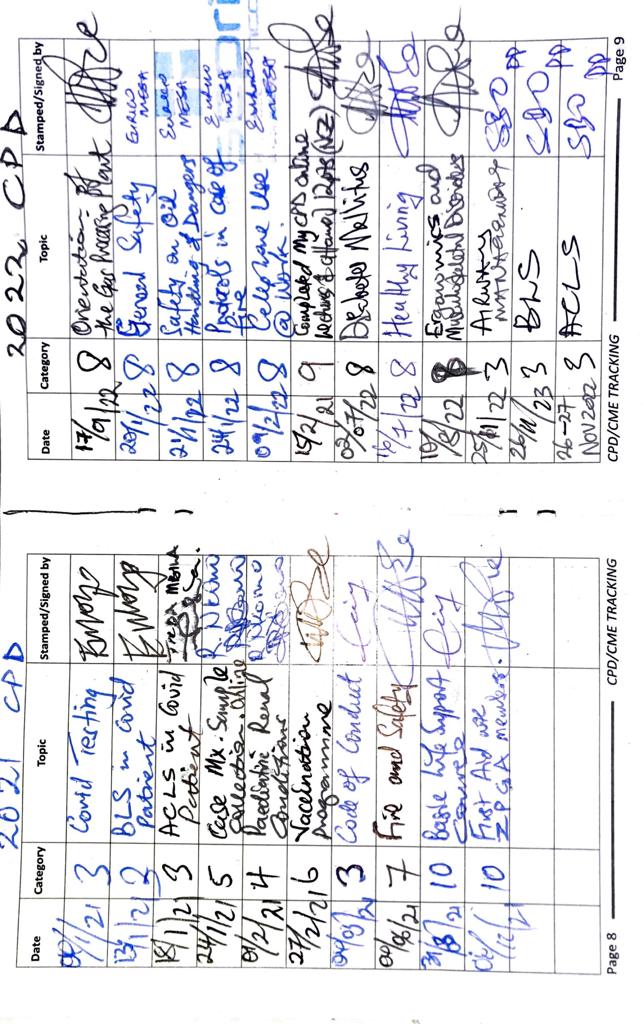 2021 CPD
Date Category Topic Stamped/Signed by
09/1/21 3 Covid Testing
13/1/21 3 BLS in Covid
Patient
18/1/21 3 ACLS in Covid
Patient
24/1/21 5 Case Mx. Sample
Collection. Online
01/2/21 4 Paediatric Renal
Conditions
27/2/21 6 Vaccination
Programme
09/03/21 3 Code of Conduct
09/08/21 7 Fire and Safety
31/8/21 10 Basic Life Support
Course
/12/21 10 First Aid
ZPGA members.
Page 8 CPD/CME TRACKING
2022 CPD
Date Category Topic Stamped/Signed by
17/01/22 8 Orientation
the Gas Processing Plant
20/1/22 8 General Safety
21/1/22 8 Safety on Oil
Handling & Dangers
24/1/22 8 Protocols in case of
Fire
09/2/22 8 Cellphone Use
@ Work.
15/2/21 9 Completed My CPD online
(NZ)
02/07/22 8 Diabetes Mellitus
16/7/22 8 Healthy Living
10/8/22 8 Ergonomics and
Musculoskeletal Disorders
25/11/22 3 Airway
SBO PP
26/11/23 3 BLS SBO PP
26-27
NOV 2022 3 ACLS SBO PP
CPD/CME TRACKING Page 9